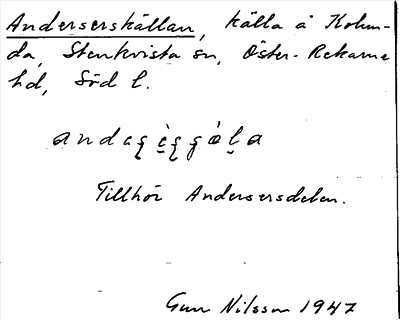 Anderserskällan, källa å Kolun-
da, Stenkvista sn, Öster-Rekarne
hd, Söd l.
Tillhör Andersersdelen.
Gun Nilsson 1947